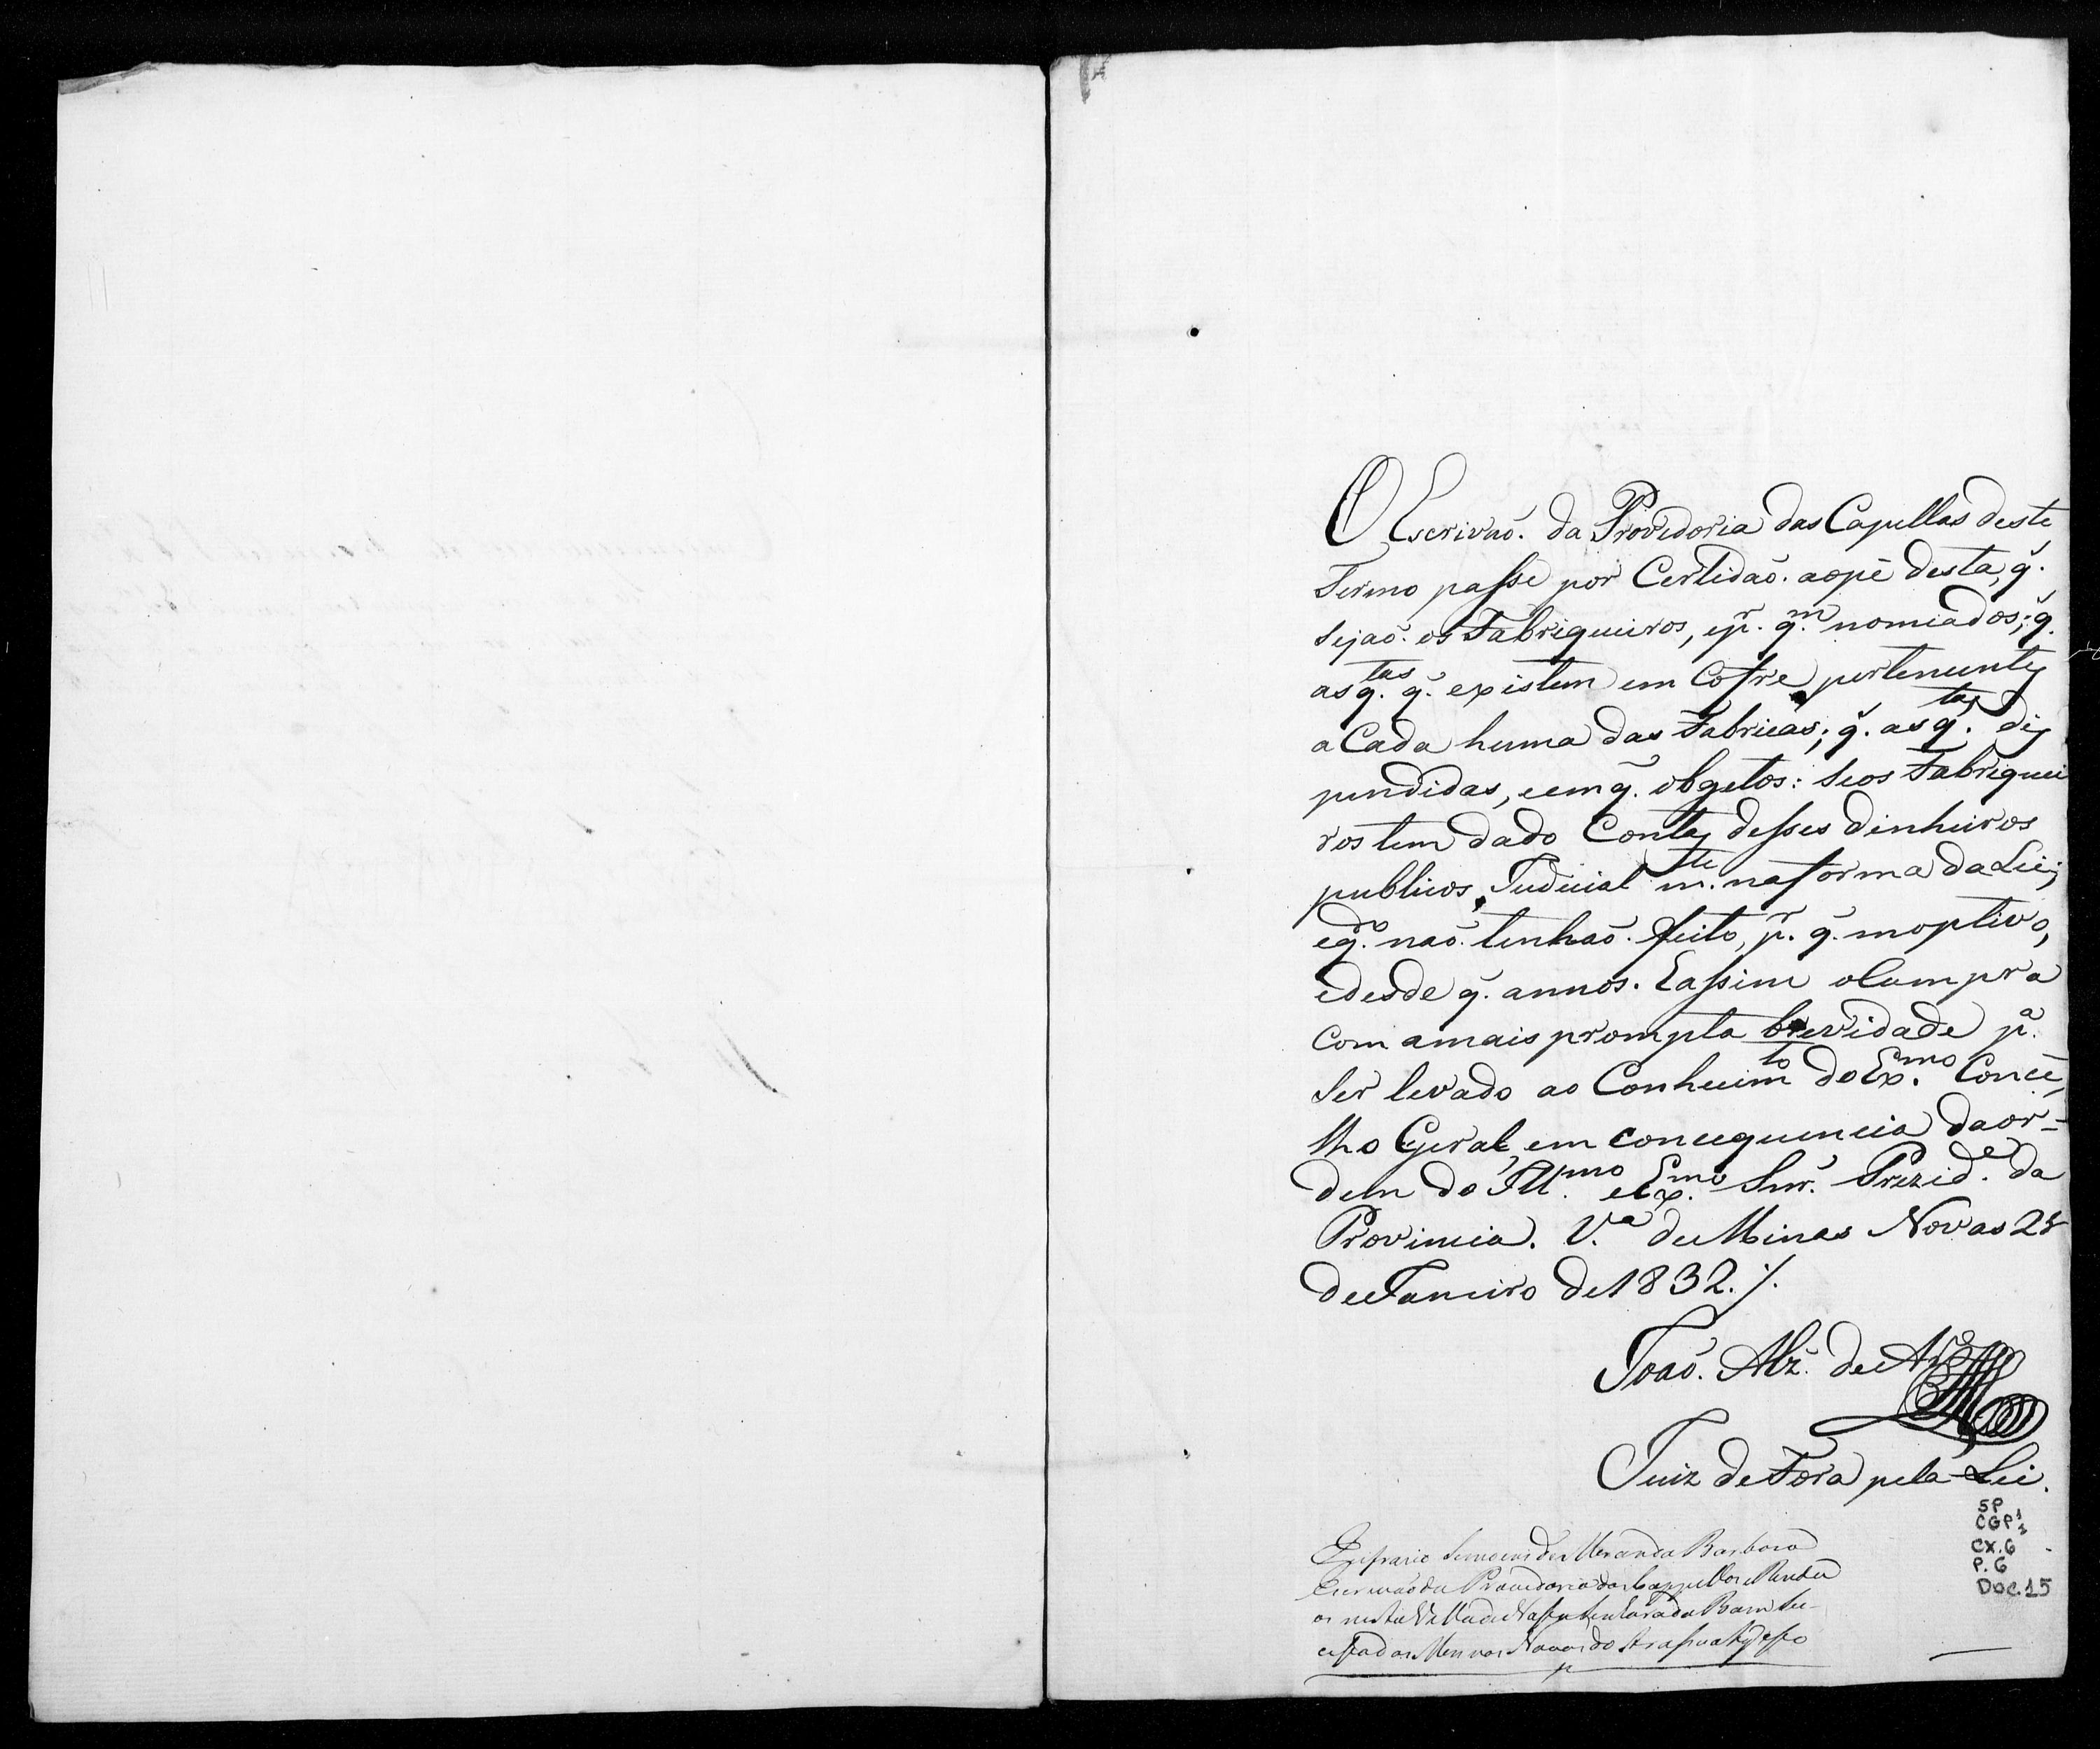 O Escrivaõ. da Provedoria das Capellas deste
Termo passe por Certidaõ. aopé desta, q̃.
sejaõ. os Fabriqueiros, ep.r q.m nomiados; q̃.
as q.tas q̃. existem em Cofre pertenentes
a Cada huma das Fabricas; q̃. as q.tas dis
pendidas, eem q̃. obgetos: seos Fabriquei
ros tem dado Contas desses dinheiros
publicos, Judicial m.te na forma da Lei;
eq.do naõ. tenhaõ. feito, p.r q̃. moptivo,
edesde q̃. annos. Eassim oCumpra
com amais prompta brevidade p.a
ser levado ao Conhecim.to do Ex.mo Conce
lho Geral, em concequencia da or-
dem do Ill.mo e Ex.mo Snr. Prezid.e da
Provincia. V.a de Minas Novas 28
de Janeiro de 1832./.
Joaõ. Alz̃. de
Juiz de Fora pela Lei.
SP
CGP1
CX.6
P.6
DOC.15
de Meranda Barbosa
Escrivaõ da Provedoria das Cappellas e Rezidu
os nesta Villa de Nossa Senhora do Bom Su-
cesso das Minnas Novas do Arassuahy